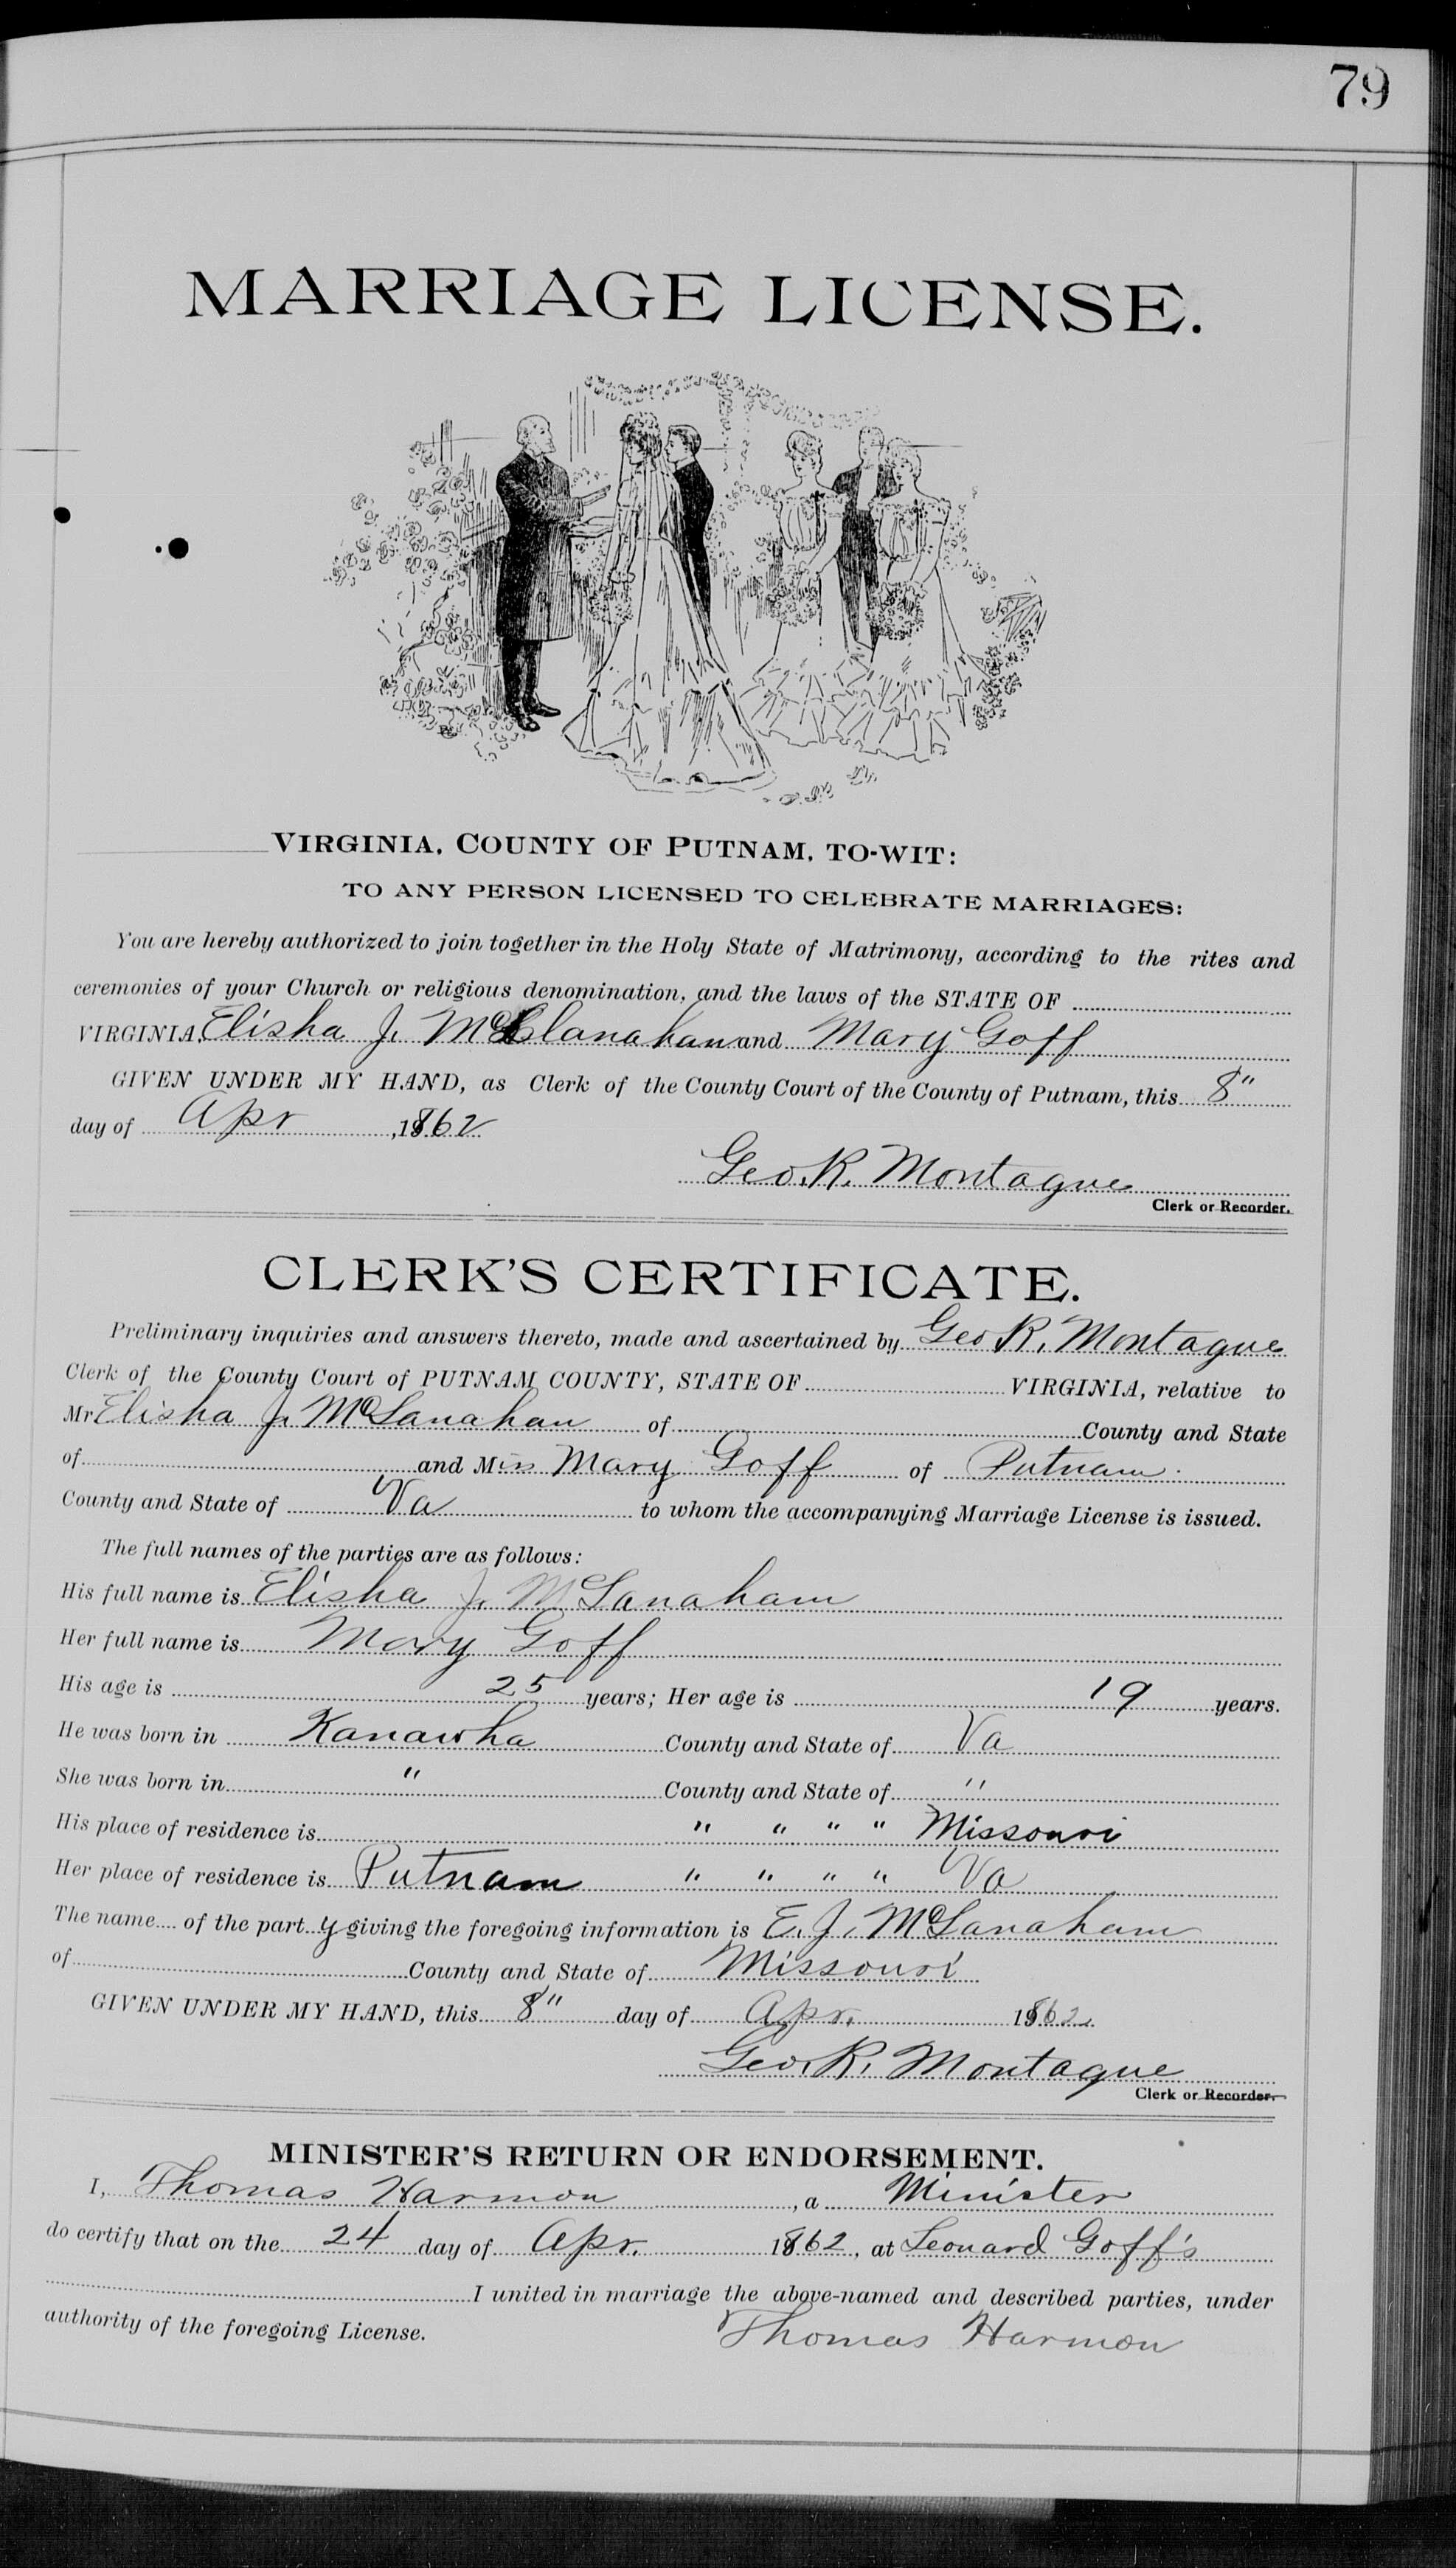 79
MARRIAGE LICENSE.
VIRGINIA, COUNTY OF PUTNAM, TO-WIT:
TO ANY PERSON LICENSED TO CELEBRATE MARRIAGES:
You are hereby authorized to join together in the Holy State of Matrimony, according to the rites and
ceremonies of your Church or religious denomination, and the laws of the STATE OF
VIRGINIA, Elisha J. McClanahan and Mary Goff
GIVEN UNDER MY HAND, as Clerk of the County Court of the County of Putnam, this 8"
day of Apr, 1862
Geo. R. Montague
Clerk or Recorder.
CLERK'S CERTIFICATE.
Preliminary inquiries and answers thereto, made and ascertained by Geo R. Montague
Clerk of the County Court of PUTNAM COUNTY, STATE OF VIRGINIA, relative to
Mr Elisha J. McLanahan of County and State
of and Miss Mary Goff of Putnam
County and State of Va to whom the accompanying Marriage License is issued.
The full names of the parties are as follows:
His full name is Elisha J. McLanaham
Her full name is Mary Goff
His age is 25 years; Her age is 19 years.
He was born in Kanawha County and State of Va
She was born in " County and State of "
His place of residence is " " " " Missouri
Her place of residence is Putnam " " " " Va
The name of the party giving the foregoing information is E. J. McLanaham
of County and State of Missouri
GIVEN UNDER MY HAND, this 8" day of Apr. 1862
Geo. R. Montague
Clerk or Recorder.
MINISTER'S RETURN OR ENDORSEMENT.
I, Thomas Harmon, a Minister
do certify that on the 24 day of Apr. 1862, at Leonard Goff's
I united in marriage the above-named and described parties, under
authority of the foregoing License.
Thomas Harmon